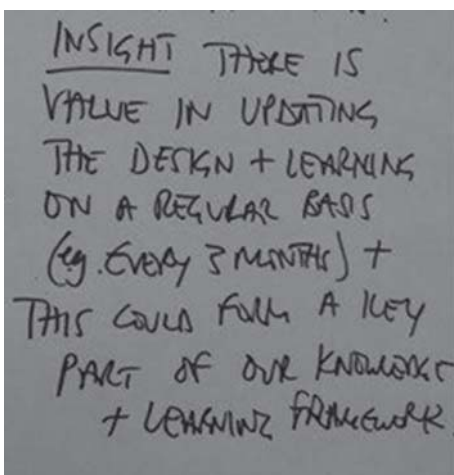 INSIGHT THERE IS
VALUE IN UPDATING
THE DESIGN + LEARNING
ON A REGULAR BASIS
(eg. EVERY 3 MONTHS) +
THIS COULD FORM A KEY
PART OF OUR KNOWLEDGE
+ LEARNING FRAMEWORK.